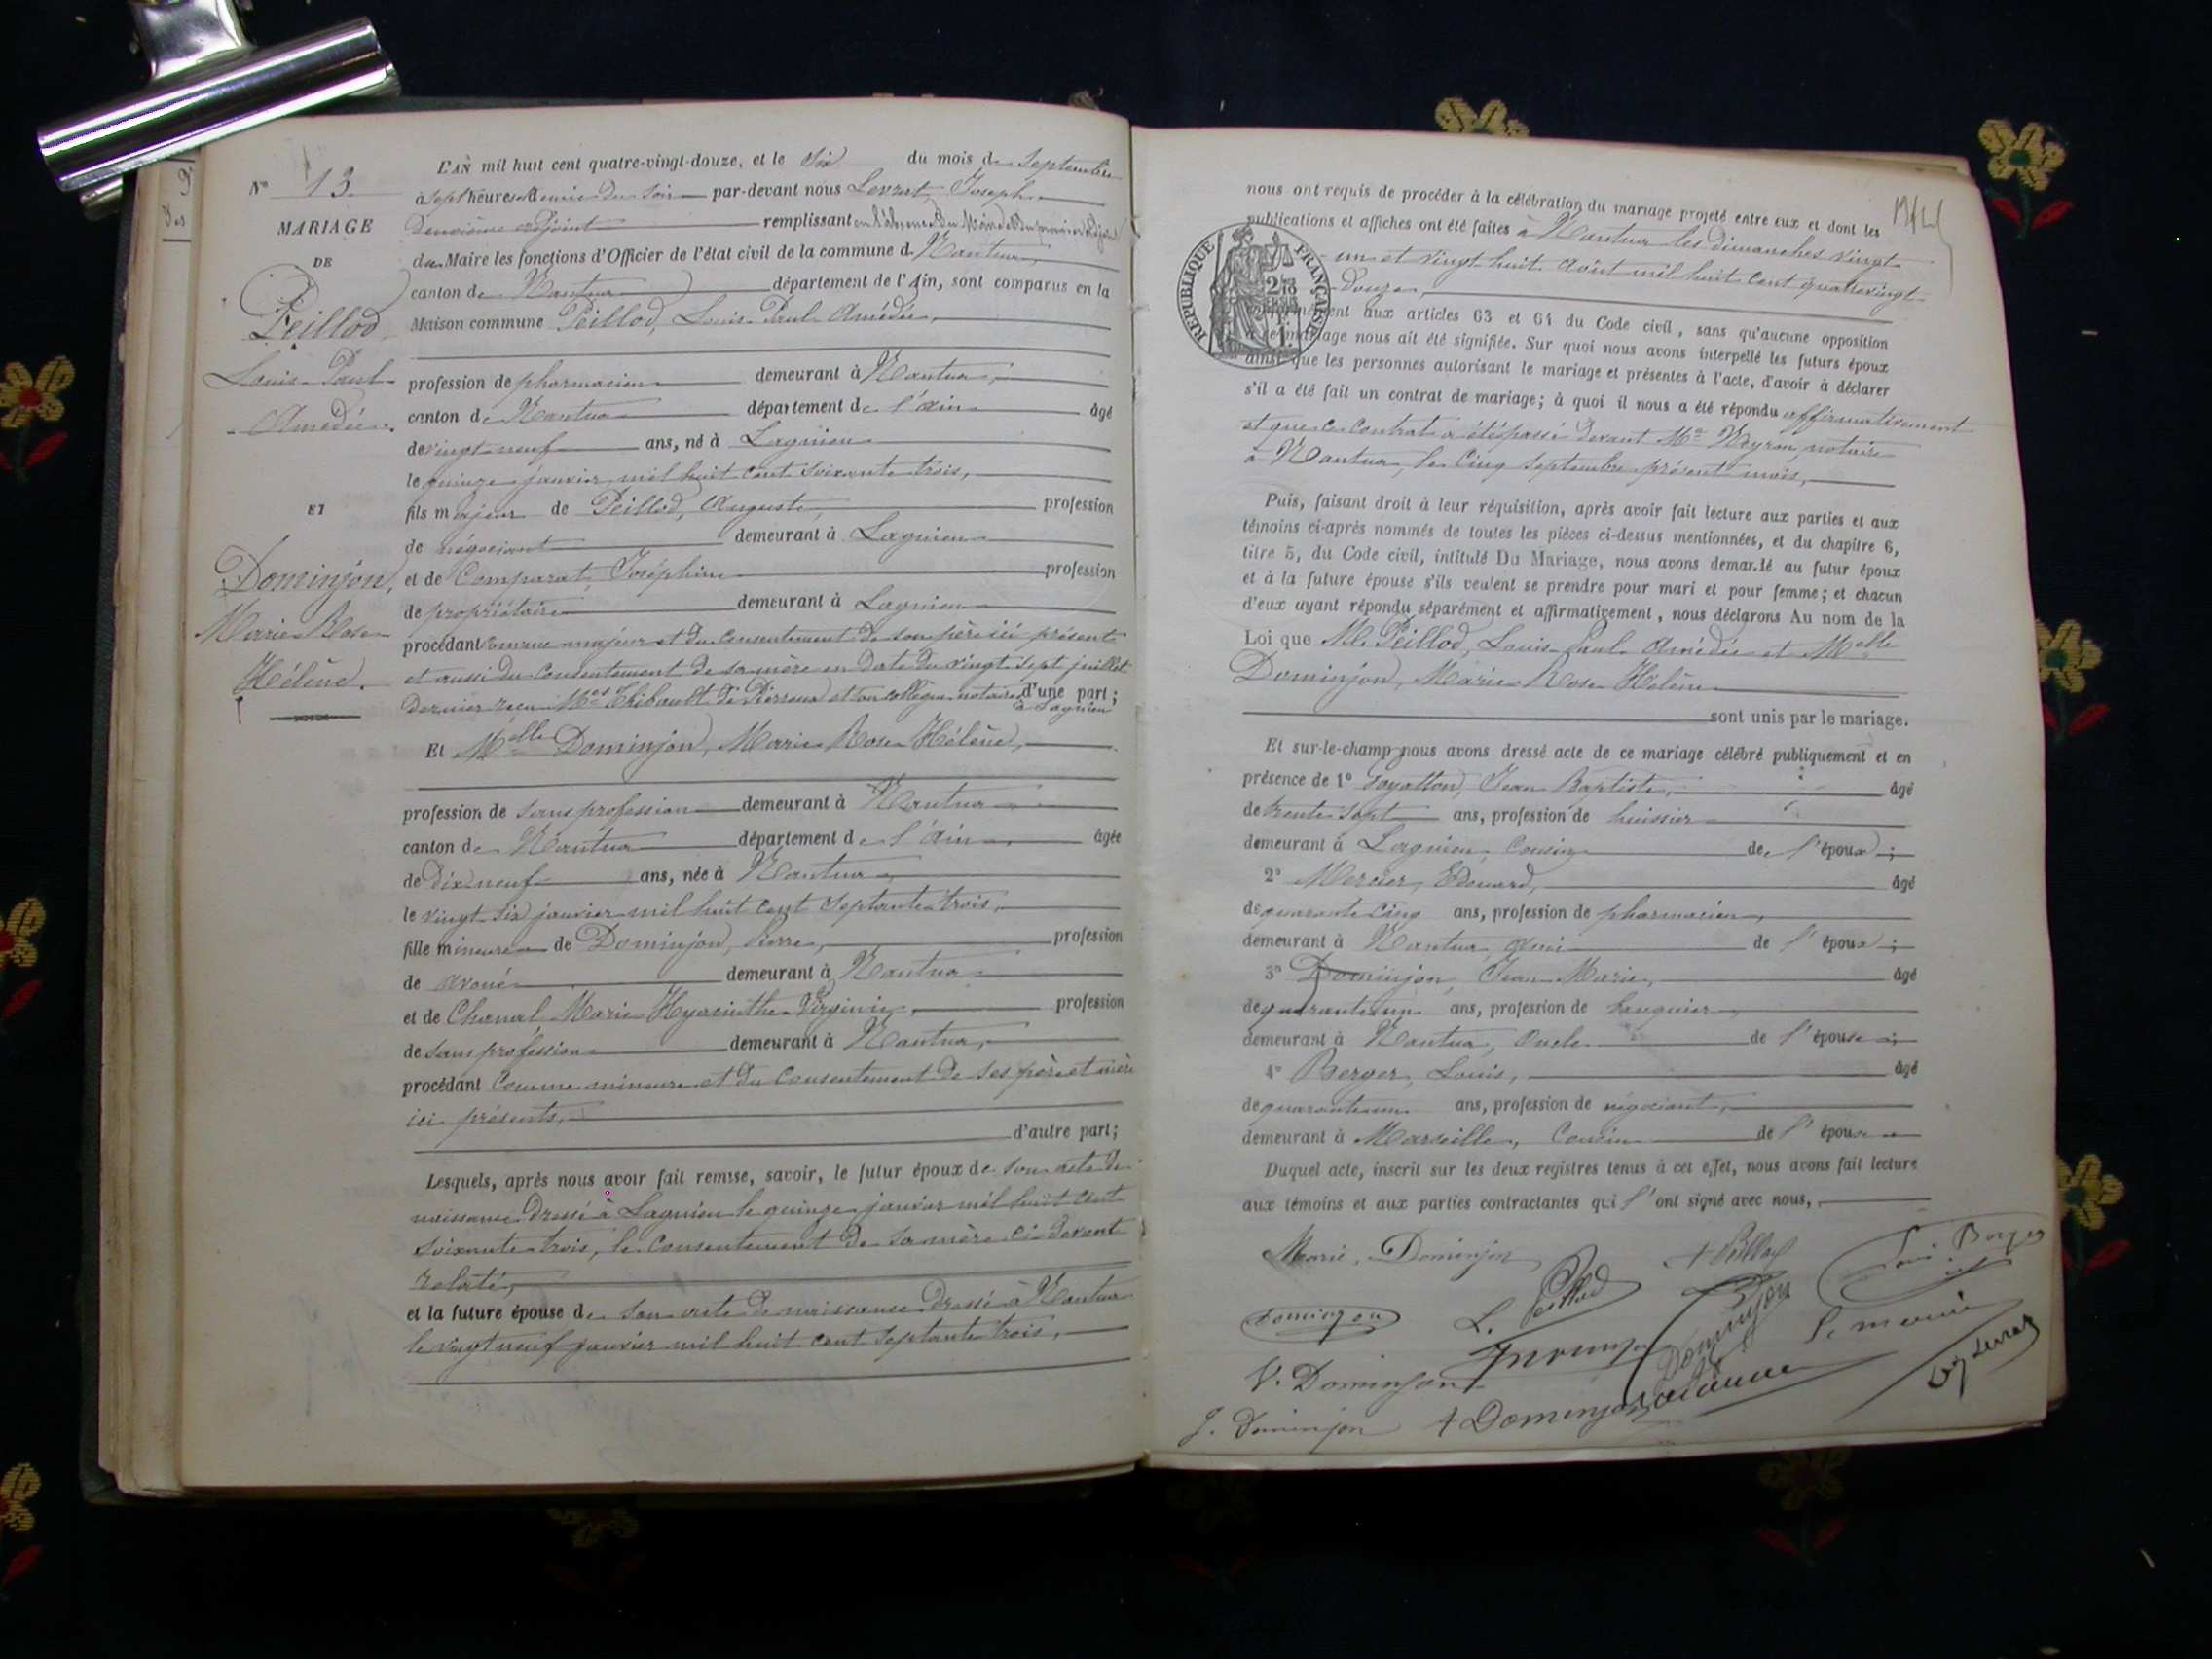 L'AN mil huit cent quatre-vingt-douze, et le Six du mois de Septembre
N° 13.
à sept heures et demie du soir par-devant nous Levrat, Joseph
MARIAGE
Deuxième adjoint remplissant en l'absence du Maire et du premier adjoint
DE
du Maire les fonctions d'Officier de l'état civil de la commune d Nantua,
canton de Nantua département de l'Ain, sont comparus en la
Peillod,
Maison commune Peillod, Louis Paul Amédée,
Louis Paul
profession de pharmacien demeurant à Nantua,
Amédée.
canton de Nantua département de l'Ain âgé
de vingt neuf ans, né à Lagnieu
le quinze janvier mil huit cent soixante trois,
ET
fils majeur de Peillod, Auguste, profession
de négociant demeurant à Lagnieu
Dominjon,
et de Comparat, Joséphine profession
de propriétaire demeurant à Lagnieu
Marie Rose
procédant comme majeur et du consentement de son père ici présent
Hélène.
et aussi du consentement de sa mère en date du vingt sept juillet
dernier reçu Mes Thibault de Pierreux et son collègue notaires d'une part;
à Lagnieu
Et Melle Dominjon, Marie Rose Hélène,
profession de sans profession demeurant à Nantua
canton de Nantua département de l'Ain âgée
de dix neuf ans, née à Nantua
le vingt six janvier mil huit cent septante trois,
fille mineure de Dominjon, Pierre, profession
de avoué demeurant à Nantua
et de Chanal, Marie Hyacinthe Virginie, profession
de sans profession demeurant à Nantua,
procédant comme mineure et du consentement de ses père et mère
ici présents,
d'autre part;
Lesquels, après nous avoir fait remise, savoir, le futur époux de son acte de
naissance dressé à Lagnieu le quinze janvier mil huit cent
soixante trois, le consentement de sa mère ci devant
relaté,
et la future épouse de son acte de naissance dressé à Nantua
le vingt neuf janvier mil huit cent septante trois,
nous ont requis de procéder à la célébration du mariage projeté entre eux et dont les
publications et affiches ont été faites à Nantua les dimanches vingt
un et vingt huit août mil huit cent quatre vingt
douze,
RÉPUBLIQUE FRANÇAISE
conformément aux articles 63 et 64 du Code civil, sans qu'aucune opposition
à ce mariage nous ait été signifiée. Sur quoi nous avons interpellé les futurs époux
ainsi que les personnes autorisant le mariage et présentes à l'acte, d'avoir à déclarer
s'il a été fait un contrat de mariage; à quoi il nous a été répondu affirmativement
et que ce contrat a été passé devant Me Neyron, notaire
à Nantua, le cinq septembre présent mois,
Puis, faisant droit à leur réquisition, après avoir fait lecture aux parties et aux
témoins ci-après nommés de toutes les pièces ci-dessus mentionnées, et du chapitre 6,
titre 5, du Code civil, intitulé Du Mariage, nous avons demandé au futur époux
et à la future épouse s'ils veulent se prendre pour mari et pour femme; et chacun
d'eux ayant répondu séparément et affirmativement, nous déclarons Au nom de la
Loi que M. Peillod, Louis Paul Amédée et Melle
Dominjon, Marie Rose Hélène
sont unis par le mariage.
Et sur-le-champ nous avons dressé acte de ce mariage célébré publiquement et en
présence de 1° Goyatton, Jean Baptiste, âgé
de trente sept ans, profession de huissier
demeurant à Lagnieu, cousin de l'époux;
2° Mercier, Edouard, âgé
de quarante cinq ans, profession de pharmacien,
demeurant à Nantua, ami de l'époux;
3° Dominjon, Jean Marie, âgé
de quarante un ans, profession de banquier
demeurant à Nantua, oncle de l'épouse;
4° Berger, Louis, âgé
de quarante un ans, profession de négociant,
demeurant à Marseille, Cousin de l'épouse
Duquel acte, inscrit sur les deux registres tenus à cet effet, nous avons fait lecture
aux témoins et aux parties contractantes qui l'ont signé avec nous,
Marie Dominjon
Peillod
Louis Berger
Dominjon
L. Peillod
Dominjon
V. Dominjon
J. Dominjon
Dominjon
Levrat